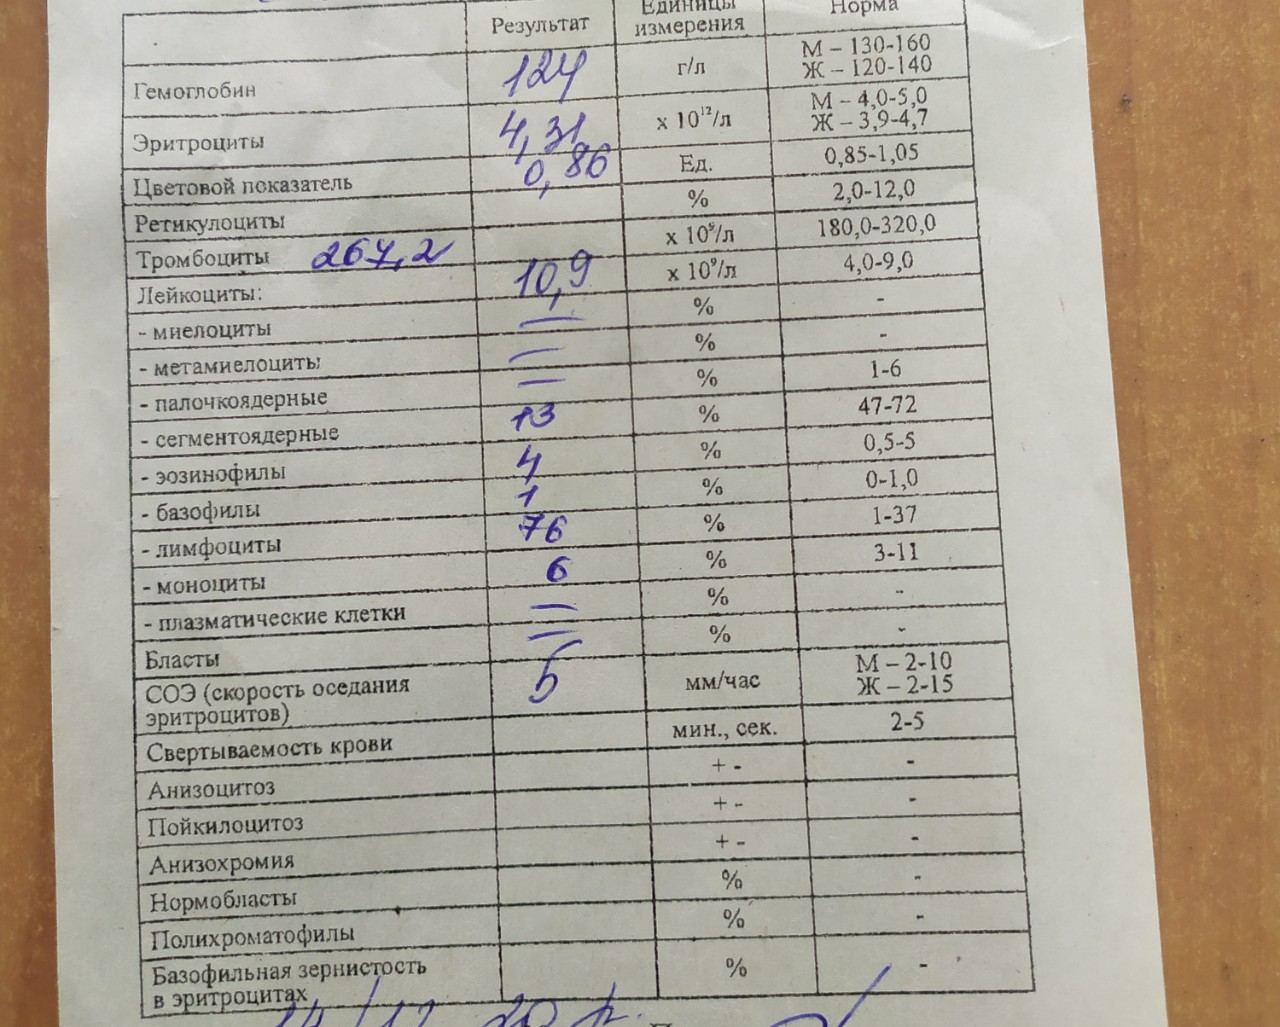 Результат Единицы измерения Норма
Гемоглобин 124 г/л М – 130-160 Ж – 120-140
Эритроциты 4,31 х 10¹²/л М – 4,0-5,0 Ж – 3,9-4,7
Цветовой показатель 0,86 Ед. 0,85-1,05
Ретикулоциты % 2,0-12,0
Тромбоциты 267,2 х 10⁹/л 180,0-320,0
Лейкоциты: 10,9 х 10⁹/л 4,0-9,0
- миелоциты — % -
- метамиелоциты — % -
- палочкоядерные — % 1-6
- сегментоядерные 13 % 47-72
- эозинофилы 4 % 0,5-5
- базофилы 1 % 0-1,0
- лимфоциты 76 % 1-37
- моноциты 6 % 3-11
- плазматические клетки — % -
Бласты — % -
СОЭ (скорость оседания эритроцитов) 5 мм/час М – 2-10 Ж – 2-15
Свертываемость крови мин., сек. 2-5
Анизоцитоз + - -
Пойкилоцитоз + - -
Анизохромия + - -
Нормобласты % -
Полихроматофилы % -
Базофильная зернистость в эритроцитах % -